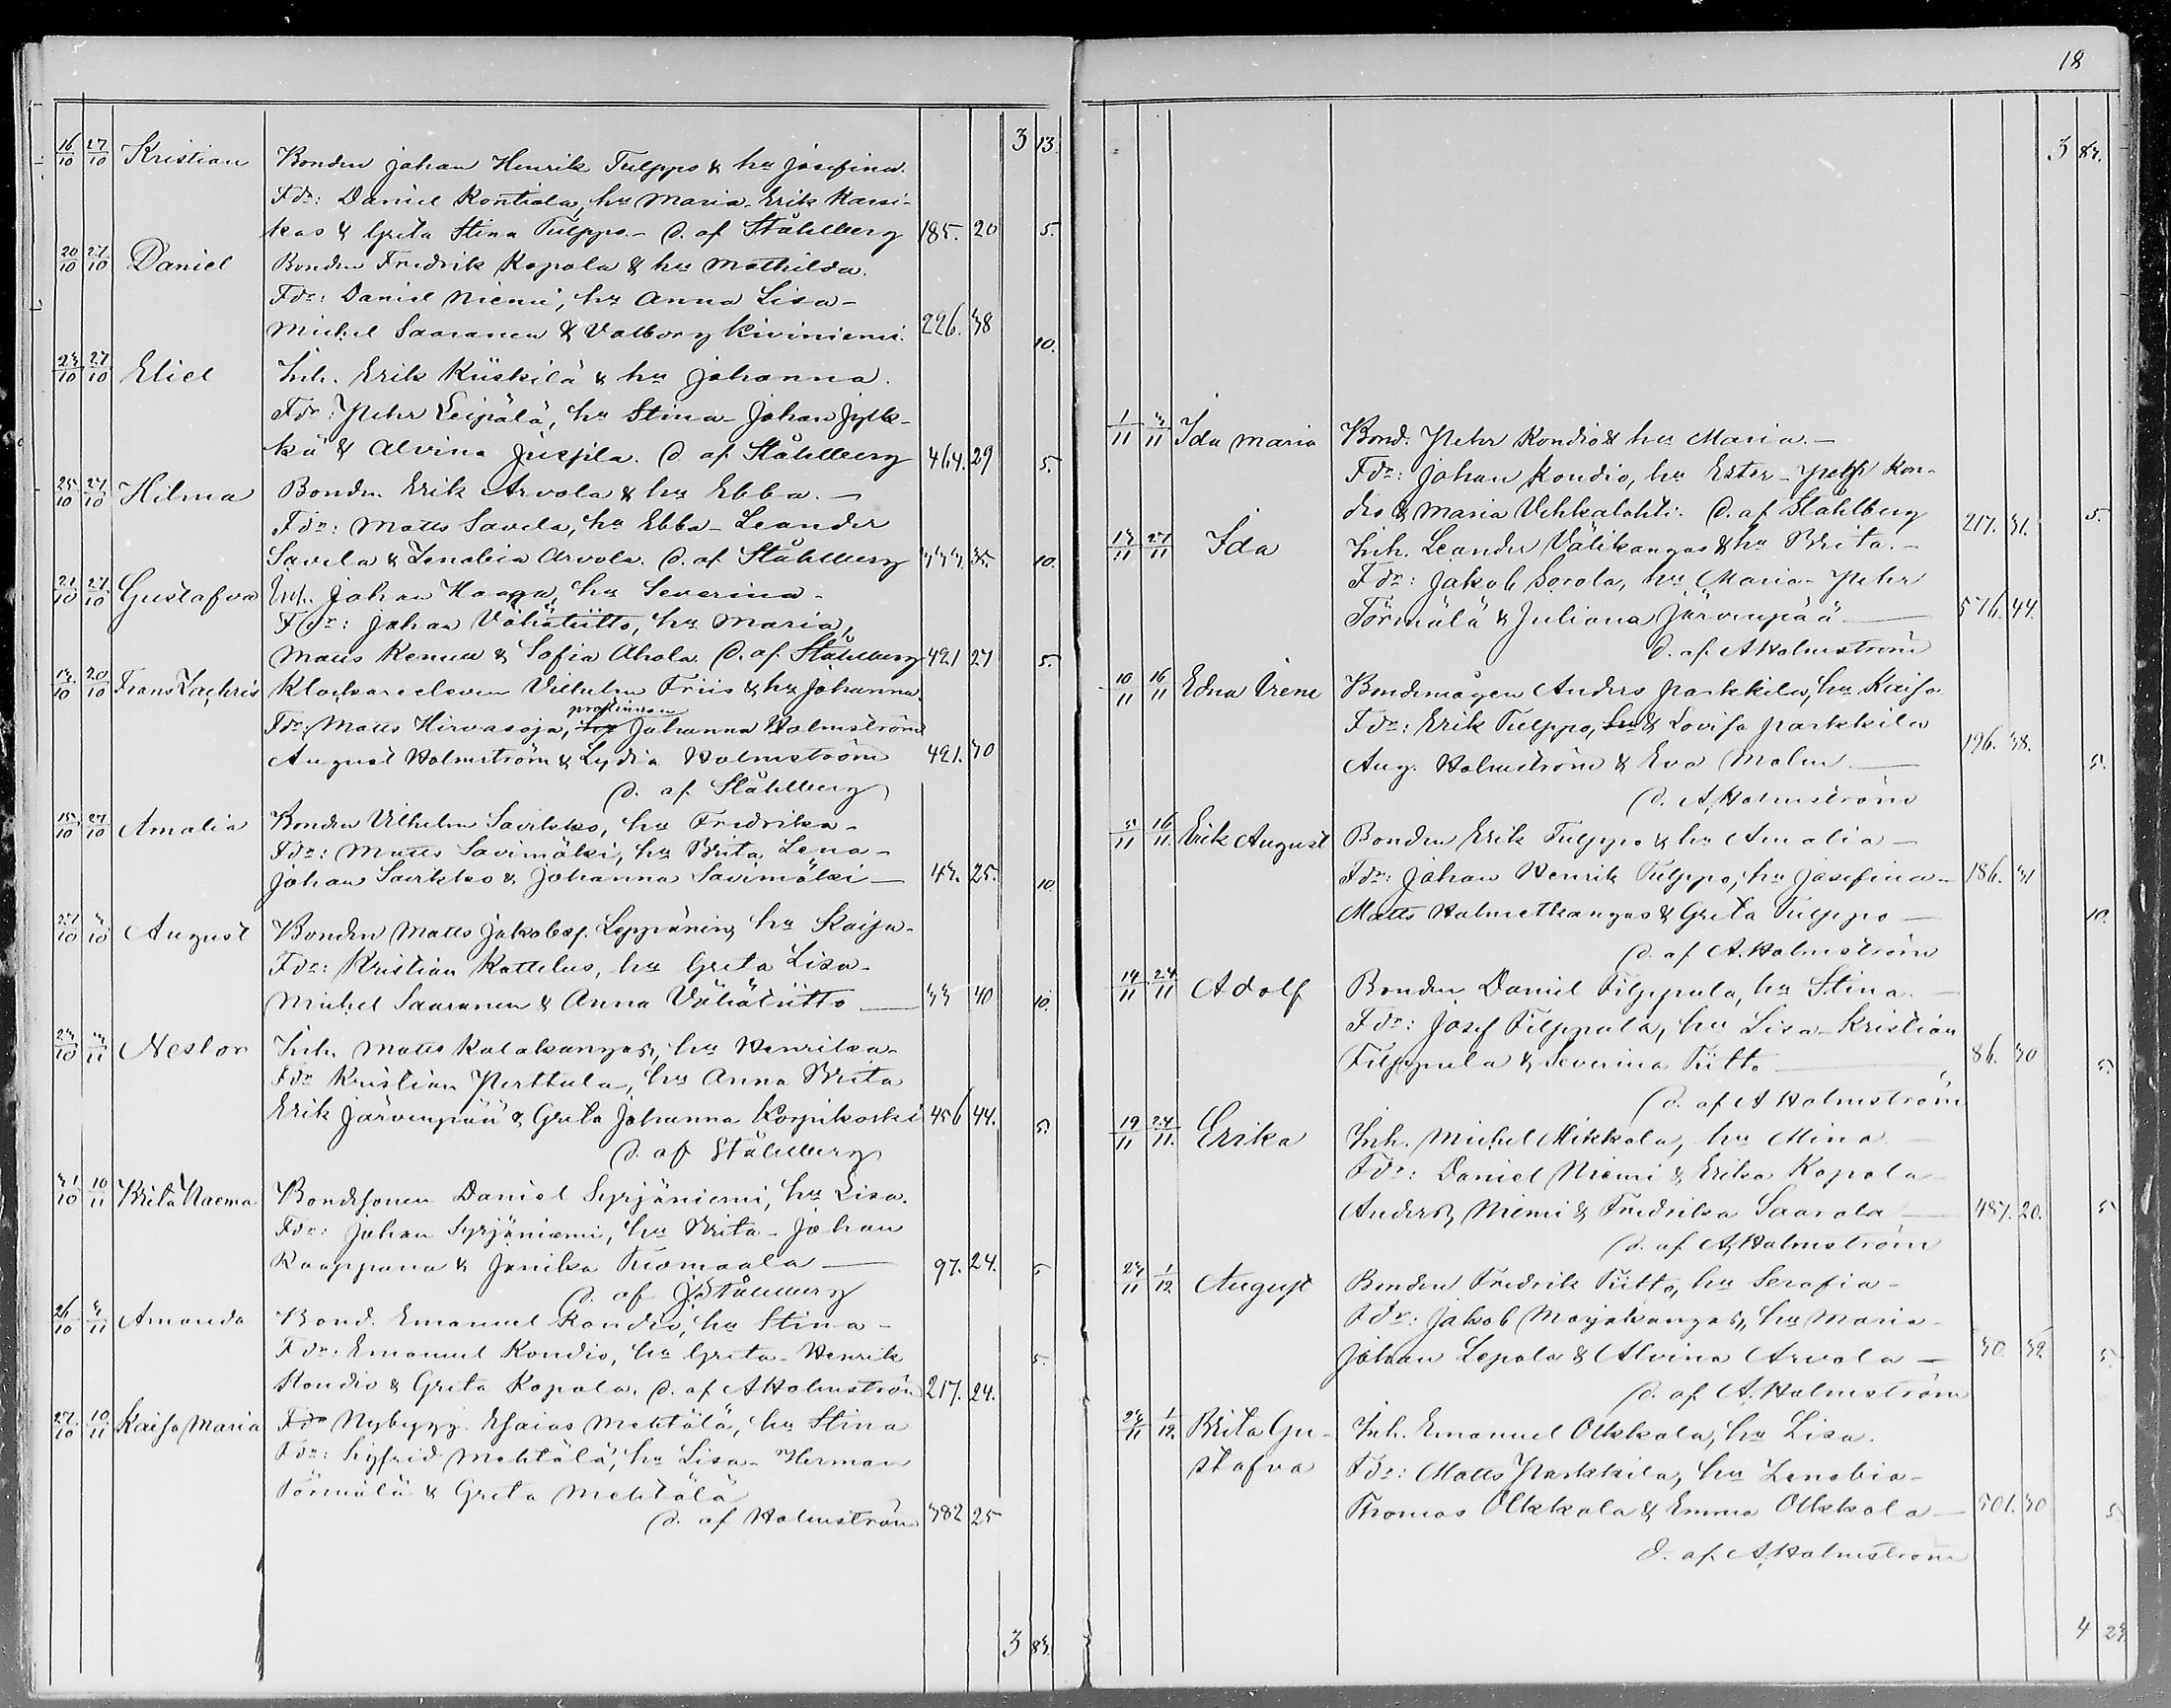 3 13.
16/10 27/10 Kristian Bonden Johan Henrik Tulppo & hu Josefina.
Fdr: Daniel Kontiola, hu Maria. Erik Karsi-
kas & Greta Stina Tulppo.- D. af Ståhlberg 185. 20 5.
20/10 27/10 Daniel Bonden Fredrik Kopola & hu Mathilda.
Fdr: Daniel Niemi, hu Anna Lisa-
Michel Saaranen & Valborg Kiviniemi. 226. 38 10.
23/10 27/10 Eliel Inh. Erik Küskilä & hu Johanna.
Fdr: Pehr Leipälä, hu Stina- Johan Jylk-
kä & Alvina D. af Ståhlberg 464. 29 5.
25/10 27/10 Hilma Bonden Erik Arvola & hu Ebba.-
Fdr: Matts Savela, hu Ebba- Leander
Savela & Zenobia Arvola. D. af Ståhlberg 333. 35. 10.
21/10 27/10 Gustafva Inh. Johan Haaga, hu Severina-
Fdr: Johan Vähätiitto, hu Maria,
Matts Kemell & Sofia Ahola. D. af Ståhlberg 421 27 5.
13/10 20/10 Frans Zachris Klockareeleven Vilhelm Friis & hu Johanna.
prostinnan
Fdr: Matts Hirvasoja, Johanna Holmström
August Holmström & Lydia Holmström 421. 30
D. af Ståhlberg
15/10 27/10 Amalia Bonden Vilhelm Saukko, hu Fredrika-
Fdr: Matts Savimäki, hu Brita Lena-
Johan Saukko & Johanna Savimäki- 43. 25. 10
27/10 3/10 August Bonden Matts Jakobsp. Leppänen, hu Kaisa-
Fdr: Kristian Kattelus, hu Greta Lisa-
Michel Saaranen & Anna Vähätiitto- 33 40 10.
23/10 3/11 Nestor Inh. Matts Kalakangas, hu Henrika-
Fdr Kristian Perttula, hu Anna Brita
Erik Järvenpää & Greta Johanna Korpikoski 456 44. 5.
D. af Ståhlberg
31/10 10/11 Brita Naema Bondesonen Daniel Syrjäniemi, hu Lisa.
Fdr: Johan Syrjäniemi, hu Brita- Johan
Kauppana & Janika Tuomaala- 97. 24. 5
D. af J. Ståhlberg
26/10 3/11 Amanda Bond. Emanuel Kondio, hu Stina-
Fdr: Emanuel Kondio, hu Greta- Henrik 5.
Kondio & Greta Kopola. D. af A Holmström 217. 24.
27/10 10/11 Kaisa Maria Fdr Nybygg. Esaias Mehtälä, hu Stina
Fdr: Sigfrid Mehtälä, hu Lisa- Herman
Törmälä & Greta Mehtälä
D. af Holmström 382 25
3 83.
18
3 83.
1/11 3/11 Ida Maria Bond. Pehr Kondio & hu Maria.-
Fdr: Johan Kondio, hu Ester- Kon-
dio & Maria Vehkalahti. D. af Ståhlberg 217. 31. 5.
13/11 27/11 Ida Inh. Leander Välikangas & hu Brita.-
Fdr: Jakob Sorola, hu Maria- Pehr
Törmälä & Juliana Järvenpää- 576. 44.
D. af. A Holmström
10/11 16/11 Edna Irene Bondemågen Anders Parkkila, hu Kaisa
Fdr: Erik Tulppo, hu & Lovisa Parkkila
Aug. Holmström & Eva Malm- 196. 38. 5.
D. A. Holmström
5/11 16/11 Erik August Bonden Erik Tulppo & hu Amalia-
Fdr: Johan Henrik Tulppo, hu Josefina- 186. 31
Matts Halmetkangas & Greta Tulppo- 10.
D. af A. Holmström
14/11 24/11 Adolf Bonden Daniel Filppula, hu Stina.
Fdr: Josef Filppula, hu Lisa- Kristian
Filppula & Severina Tiitto 86. 30 5.
D. af A Holmström
19/11 24/11 Erika Inh. Michel Mikkola, hu Mina
Fdr: Daniel Niemi & Erika Kopola
Anders Niemi & Fredrika Saarala- 487. 20. 5
D. af A. Holmström
23/11 1/12 August Bonden Fredrik Tiitto, hu Serafia-
Fdr: Jakob Majakangas, hu Maria-
Johan Lepola & Alvina Arvola- 30. 32 5.
D. af A. Holmström
24/11 1/12 Brita Gu- Inh. Emanuel Olkkola, hu Lisa.
stafva Fdr: Matts Parkkila, hu Zenobia-
Thomas Olkkola & Emma Olkkola- 501. 30 5
D. af. A. Holmström
4 23